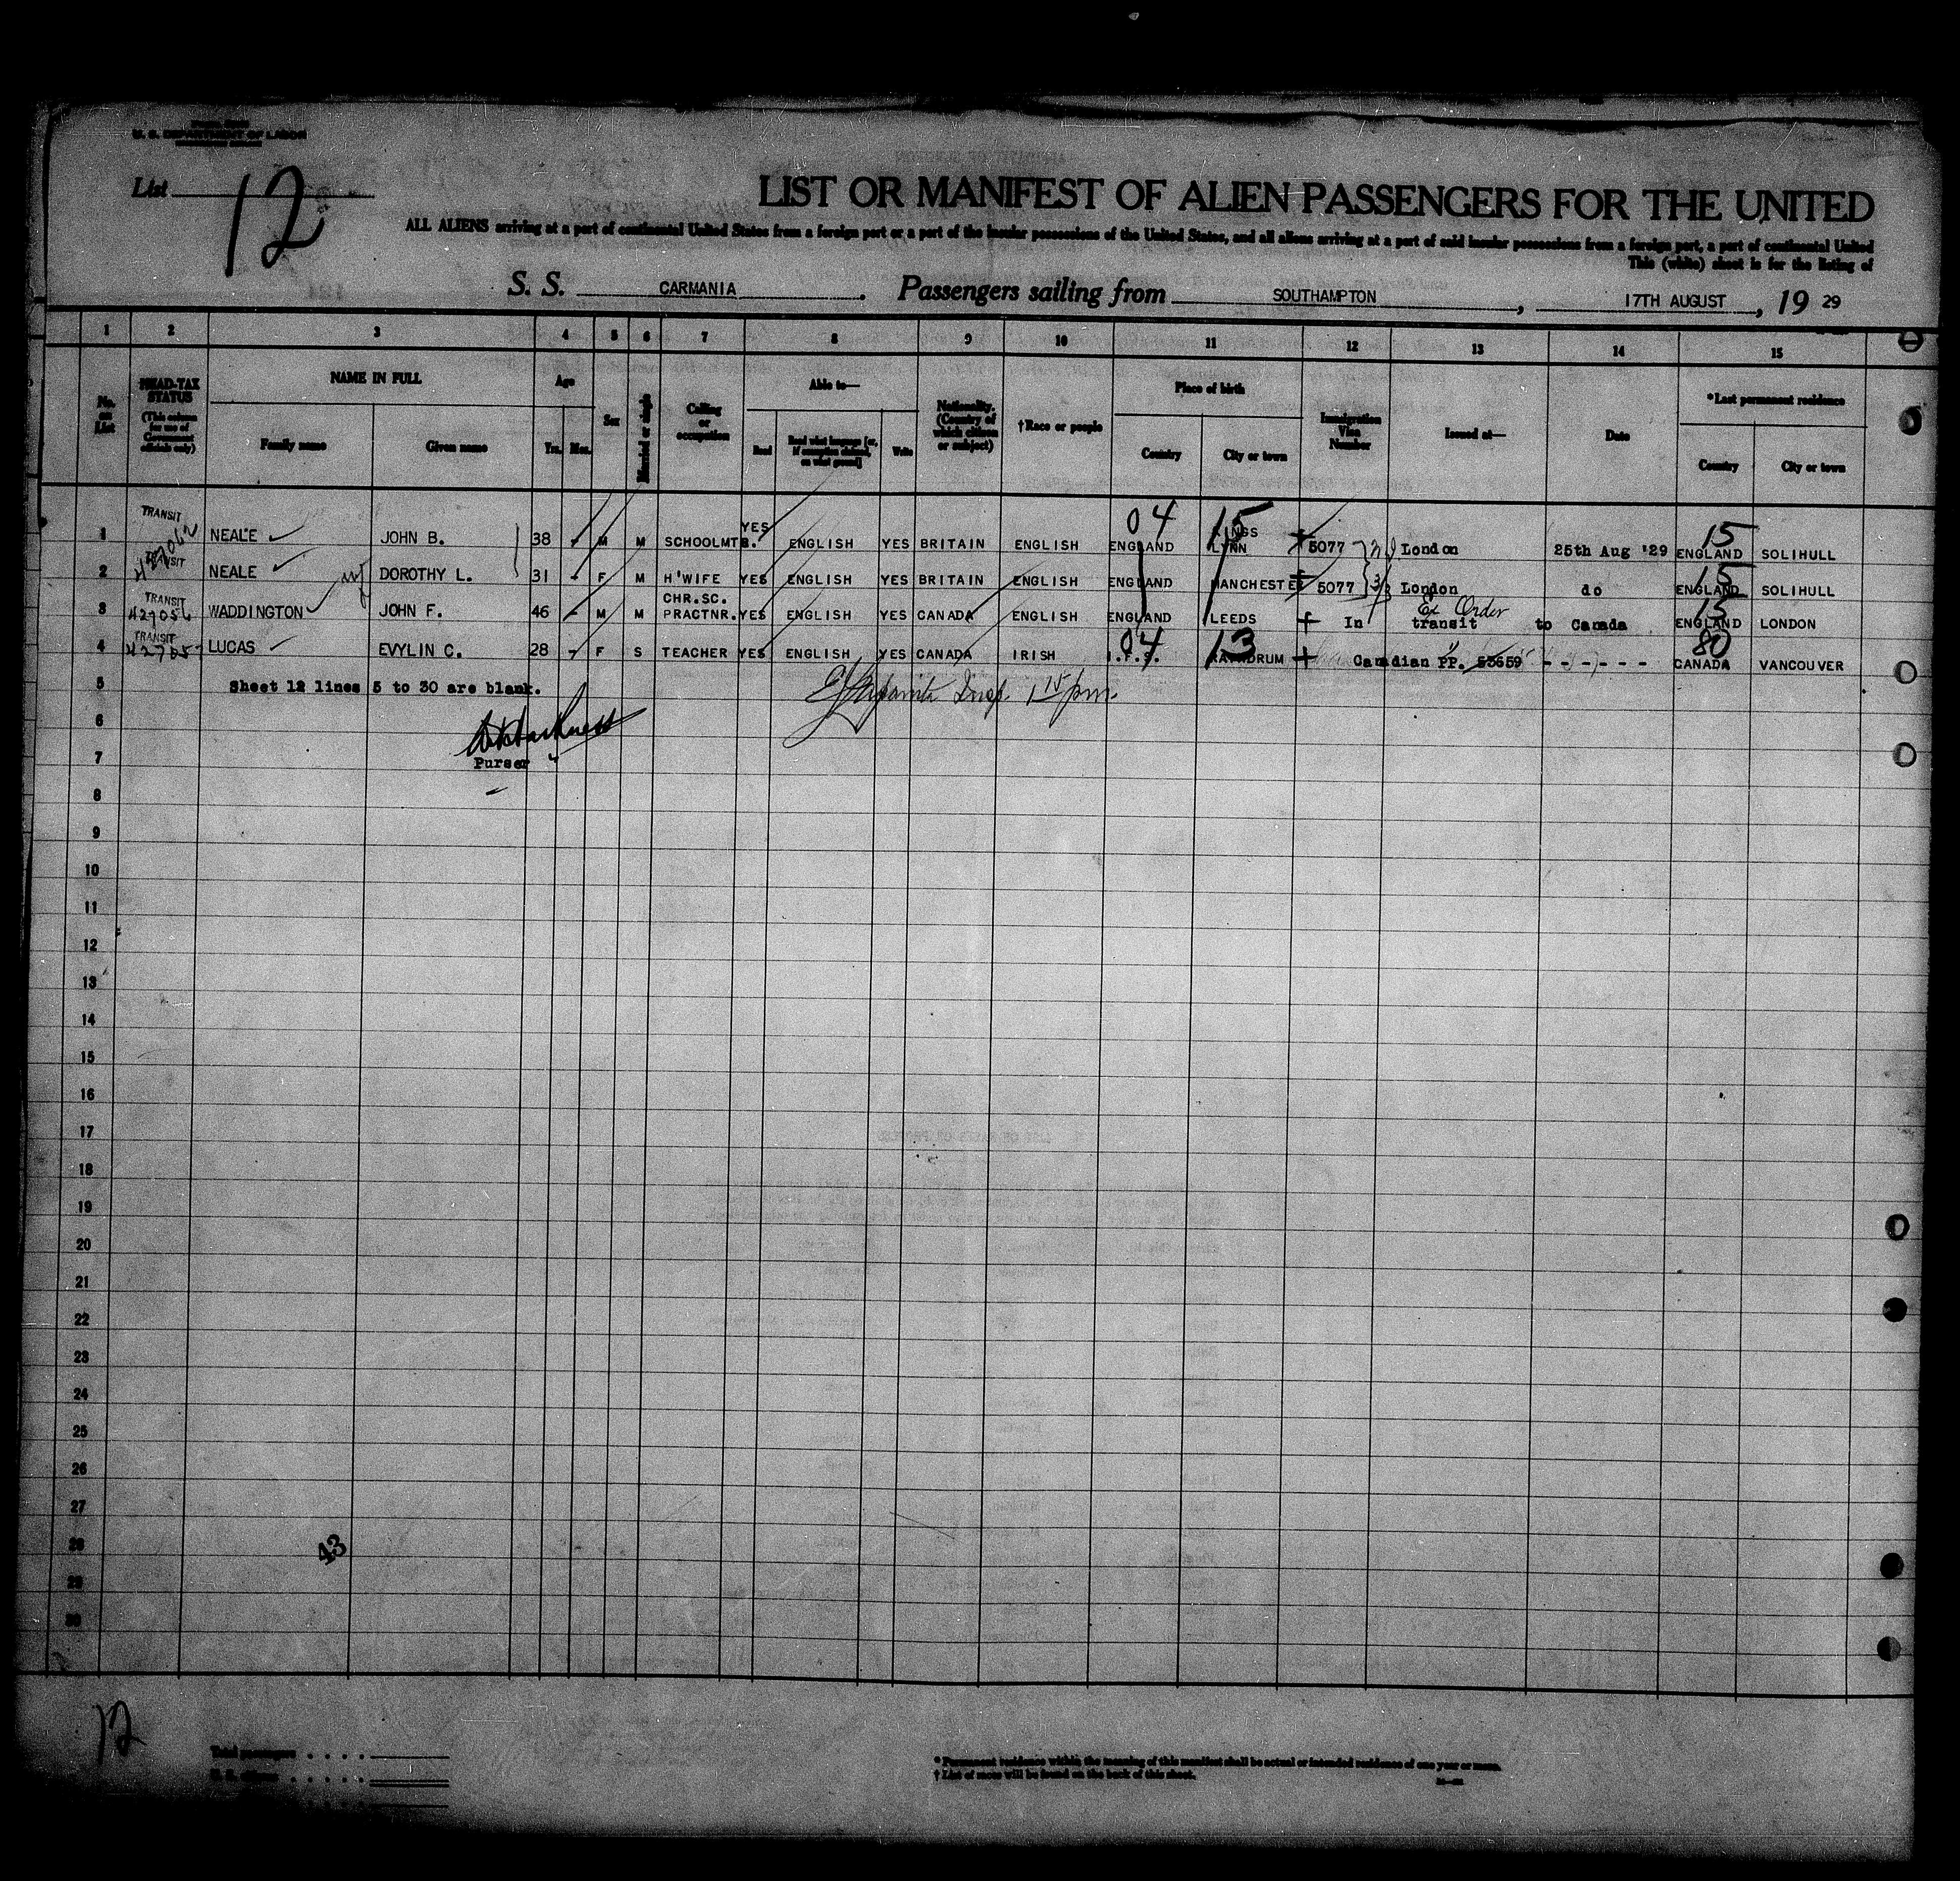 U. S. DEPARTMENT OF LABOR
List 12
LIST OR MANIFEST OF ALIEN PASSENGERS FOR THE UNITED
ALL ALIENS arriving at a port of continental United States from a foreign port or a port of the insular possessions of the United States, and all aliens arriving at a port of said insular possessions from a foreign port, a port of continental United
This (white) sheet is for the listing of
S. S. CARMANIA. Passengers sailing from SOUTHAMPTON, 17TH AUGUST, 19 29
1 2 3 4 5 6 7 8 9 10 11 12 13 14 15
No. on List
HEAD-TAX STATUS (This column for use of Government officials only)
NAME IN FULL
Family name Given name
Age
Yrs. Mos.
Sex
Married or single
Calling or occupation
Able to—
Read Read what language [or, if exemption claimed, on what ground] Write
Nationality. (Country of which citizen or subject)
†Race or people
Place of birth
Country City or town
Immigration Visa Number
Issued at—
Date
*Last permanent residence
Country City or town
1 TRANSIT NEALE JOHN B. 38 - M M SCHOOLMTR. YES ENGLISH YES BRITAIN ENGLISH 04 ENGLAND 15 KINGS LYNN 5077 London 25th Aug '29 15 ENGLAND SOLIHULL
2 TRANSIT NEALE wf DOROTHY L. 31 - F M H'WIFE YES ENGLISH YES BRITAIN ENGLISH ENGLAND MANCHESTER 5077 London do 15 ENGLAND SOLIHULL
3 TRANSIT 427056 WADDINGTON JOHN F. 46 - M M CHR.SC. PRACTNR. YES ENGLISH YES CANADA ENGLISH ENGLAND LEEDS In transit Ex Order to Canada 15 ENGLAND LONDON
4 TRANSIT 427057 LUCAS EVYLIN C. 28 - F S TEACHER YES ENGLISH YES CANADA IRISH 04 I.F.S. 13 RATHDRUM Canadian PP. 53659 - - - - - - 80 CANADA VANCOUVER
5 Sheet 12 lines 5 to 30 are blank.
6
7 Purser
8
9
10
11
12
13
14
15
16
17
18
19
20
21
22
23
24
25
26
27
28 43
29
30
12
Total passengers . . . .
U. S. citizens . . . . .
* Permanent residence within the meaning of this manifest shall be actual or intended residence of one year or more.
† List of races will be found on the back of this sheet.